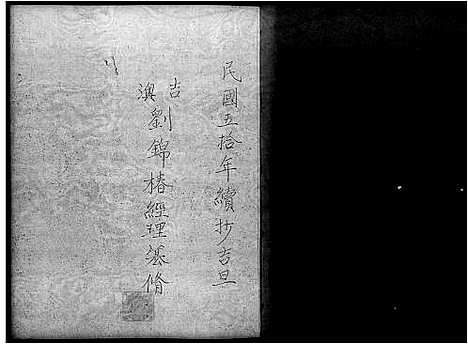 民國五拾年續抄吉旦
吉
濱劉錦椿經理湛脩